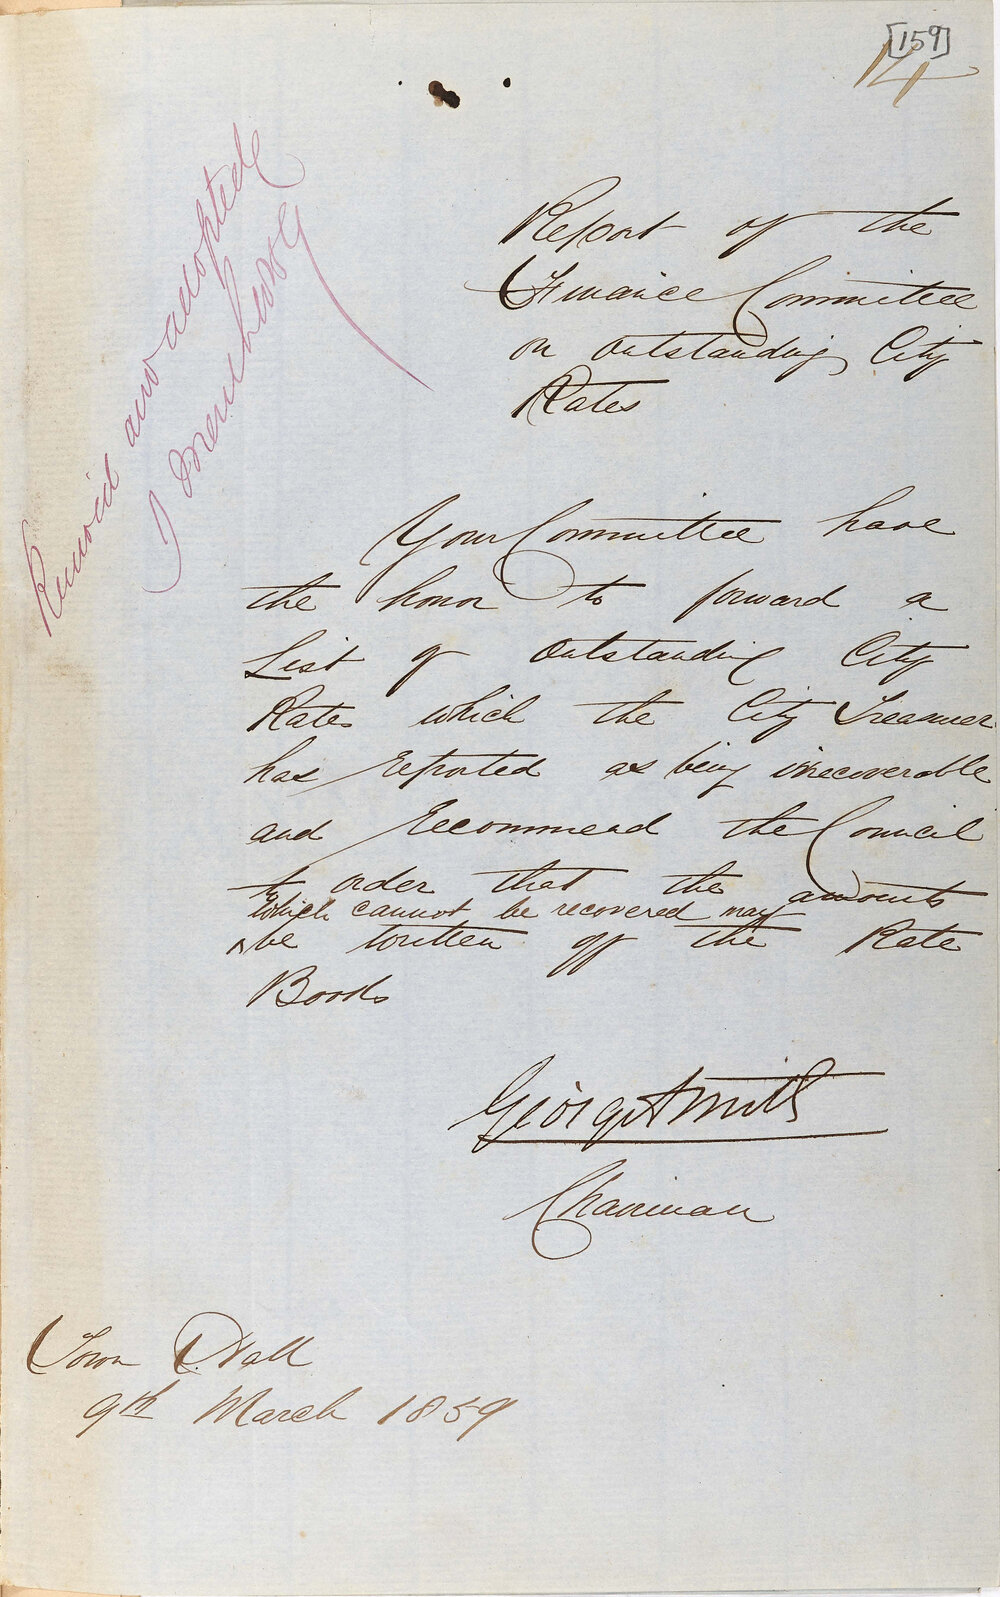 [159]
14
Report of the
Finance Committee
on outstanding City
Rates
Your Committee have
the honor to forward a
List of Outstanding City
Rates which the City Treasurer
has reported as being irrecoverable
and recommend the Council
to order that the amounts
which cannot be recovered may
^ be written off the Rate
Books
George Smith
Chairman
Town Hall
9th March 1859
Received and adopted